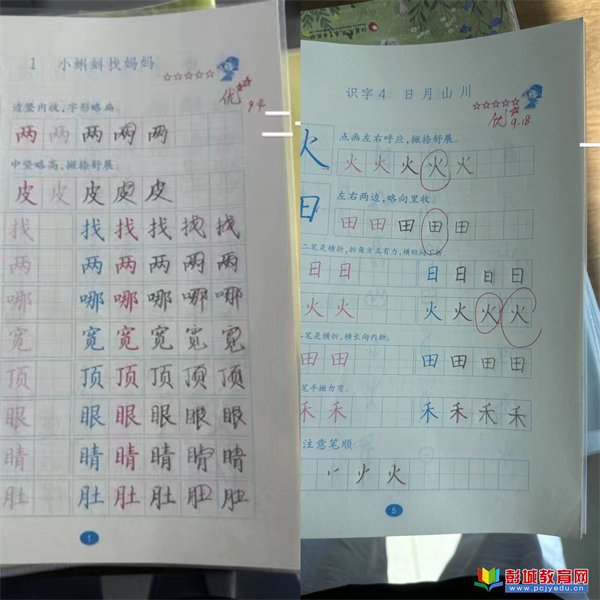 1 小蝌蚪找妈妈
☆☆☆☆☆
优
9.4
边竖内收,字形略扁。
两 两 两 两 两
中竖略高,撇捺舒展。
皮 皮 皮 皮 皮
找 找 找 找 找 找
两 两 两 两 两 两
哪 哪 哪 哪 哪 哪
宽 宽 宽 宽 宽 宽
顶 顶 顶 顶 顶 顶
眼 眼 眼 眼 眼 眼
睛 睛 睛 睛 睛 睛
肚 肚 肚 肚 肚 肚
1
识字4 日月山川
☆☆☆☆☆
优
9.18
火
点画左右呼应,撇捺舒展。
火 火 火 火 火
田
左右两边,略向里收。
田 田 田 田 田
二笔是横折,折角方正有力,
日 日 日 日 日 日
火 火 火 火 火 火
笔是横折,横长向内折。
田 田 田 田 田 田
笔平撇勿弯。
禾 禾 禾 禾 禾 禾
注意笔顺
火 火
5
彭城教育网
www.pcjyedu.cn